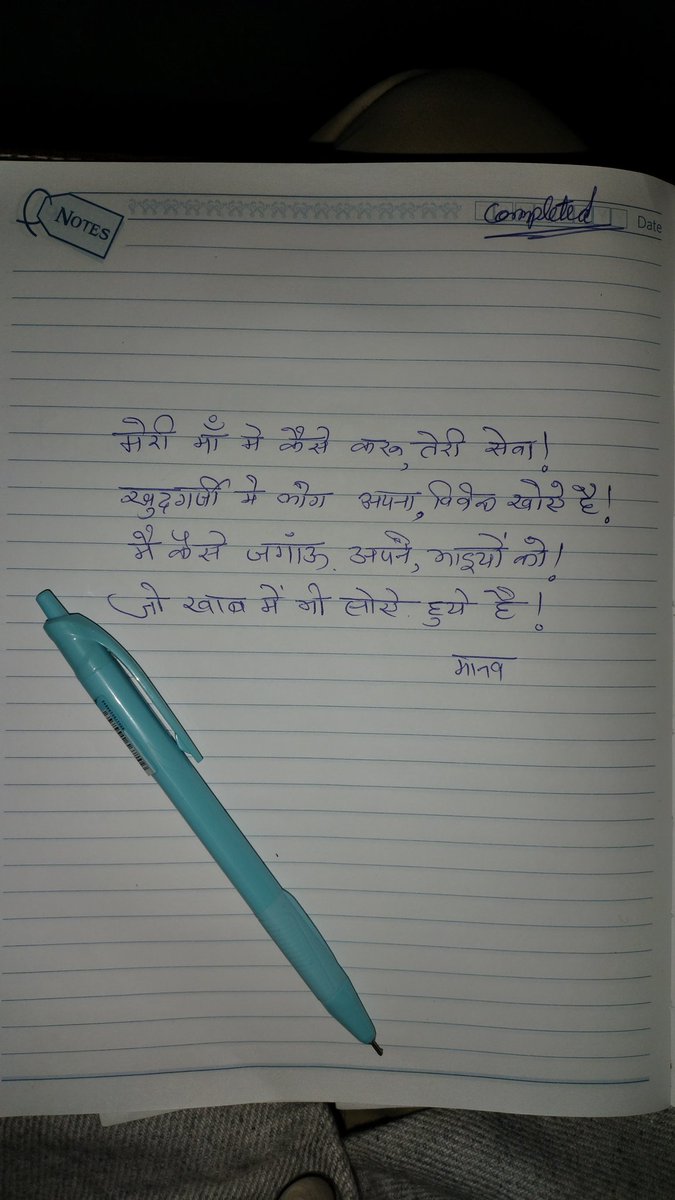 NOTES
Completed
Date
मेरी माँ मे कैसे करू, तेरी सेवा!
खुदगर्जी मे लोग अपना, विवेक खोऐ है!
मै कैसे जगाँऊ. अपने, भाइयों को!
जो खाब में भी सोऐ. हुये है!
मानव